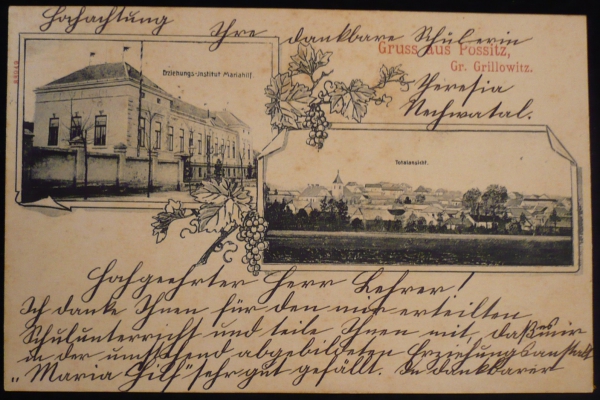 Hochachtung Ihre dankbare Schülerin
Theresia
Nechwatal.
Gruss aus Possitz,
Gr. Grillowitz.
Erziehungs-Institut Mariahilf.
Totalansicht.
Hochgeehrter Herr Lehrer!
Ich danke Ihnen für den mir erteilten
Schulunterricht und teile Ihnen mit, daß es mir
in der umstehend abgebildeten Erziehungsanstalt
„Maria Hilf" sehr gut gefällt. In dankbarer